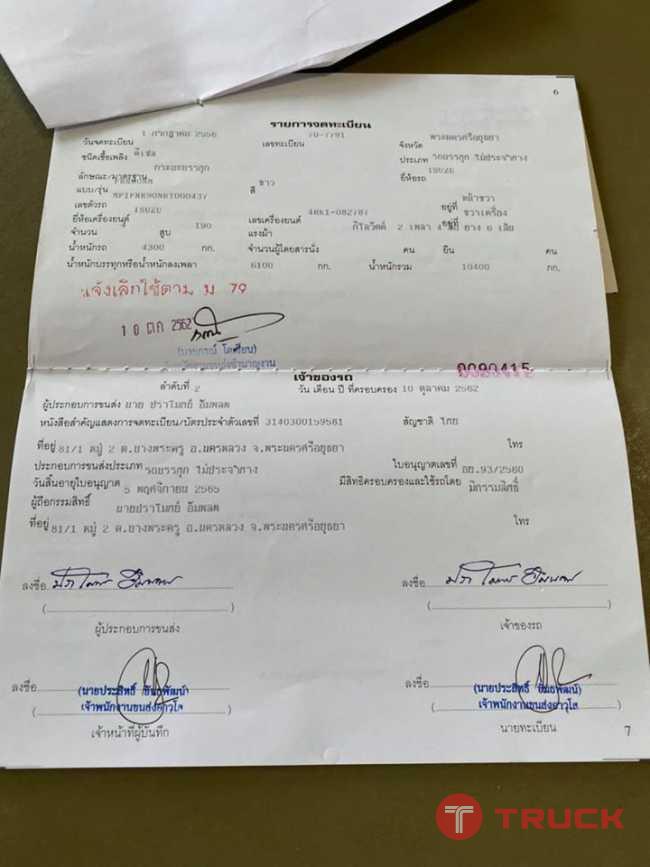 6
รายการจดทะเบียน
วันจดทะเบียน 1 กรกฎาคม 2556 เลขทะเบียน 70-7791 จังหวัด พระนครศรีอยุธยา
ชนิดเชื้อเพลิง ดีเซล ประเภท รถบรรทุก ไม่ประจำทาง
ลักษณะ/มาตรฐาน กระบะบรรทุก ยี่ห้อรถ ISUZU
แบบ/รุ่น สี ขาว
เลขตัวรถ อยู่ที่
ยี่ห้อเครื่องยนต์ ISUZU เลขเครื่องยนต์ อยู่ที่
จำนวน สูบ 190 แรงม้า กิโลวัตต์ 2 เพลา 4 ล้อ ยาง 6 เส้น
น้ำหนักรถ 4300 กก. จำนวนผู้โดยสารนั่ง คน ยืน คน
น้ำหนักบรรทุกหรือน้ำหนักลงเพลา 6100 กก. น้ำหนักรวม 10400 กก.
แจ้งเลิกใช้ตาม ม 79
10 ตค 2562
0090415
เจ้าของรถ
ลำดับที่ 2 วัน เดือน ปี ที่ครอบครอง 10 ตุลาคม 2562
ผู้ประกอบการขนส่ง นาย ปราโมทย์ อิ่มพลด
หนังสือสำคัญแสดงการจดทะเบียน/บัตรประจำตัวเลขที่ 3140300159581 สัญชาติ ไทย
ที่อยู่ 81/1 หมู่ 2 ต.บางพระครู อ.นครหลวง จ.พระนครศรีอยุธยา โทร
ประกอบการขนส่งประเภท รถบรรทุก ไม่ประจำทาง ใบอนุญาตเลขที่ อย.93/2560
วันสิ้นอายุใบอนุญาต 5 พฤศจิกายน 2565 มีสิทธิครอบครองและใช้รถโดย มีกรรมสิทธิ์
ผู้ถือกรรมสิทธิ์ นายปราโมทย์ อิ่มพลด
ที่อยู่ 81/1 หมู่ 2 ต.บางพระครู อ.นครหลวง จ.พระนครศรีอยุธยา โทร
ลงชื่อ ลงชื่อ
ผู้ประกอบการขนส่ง เจ้าของรถ
ลงชื่อ ลงชื่อ
เจ้าพนักงานขนส่งอาวุโส เจ้าพนักงานขนส่งอาวุโส
เจ้าหน้าที่ผู้บันทึก นายทะเบียน
7
TRUCK